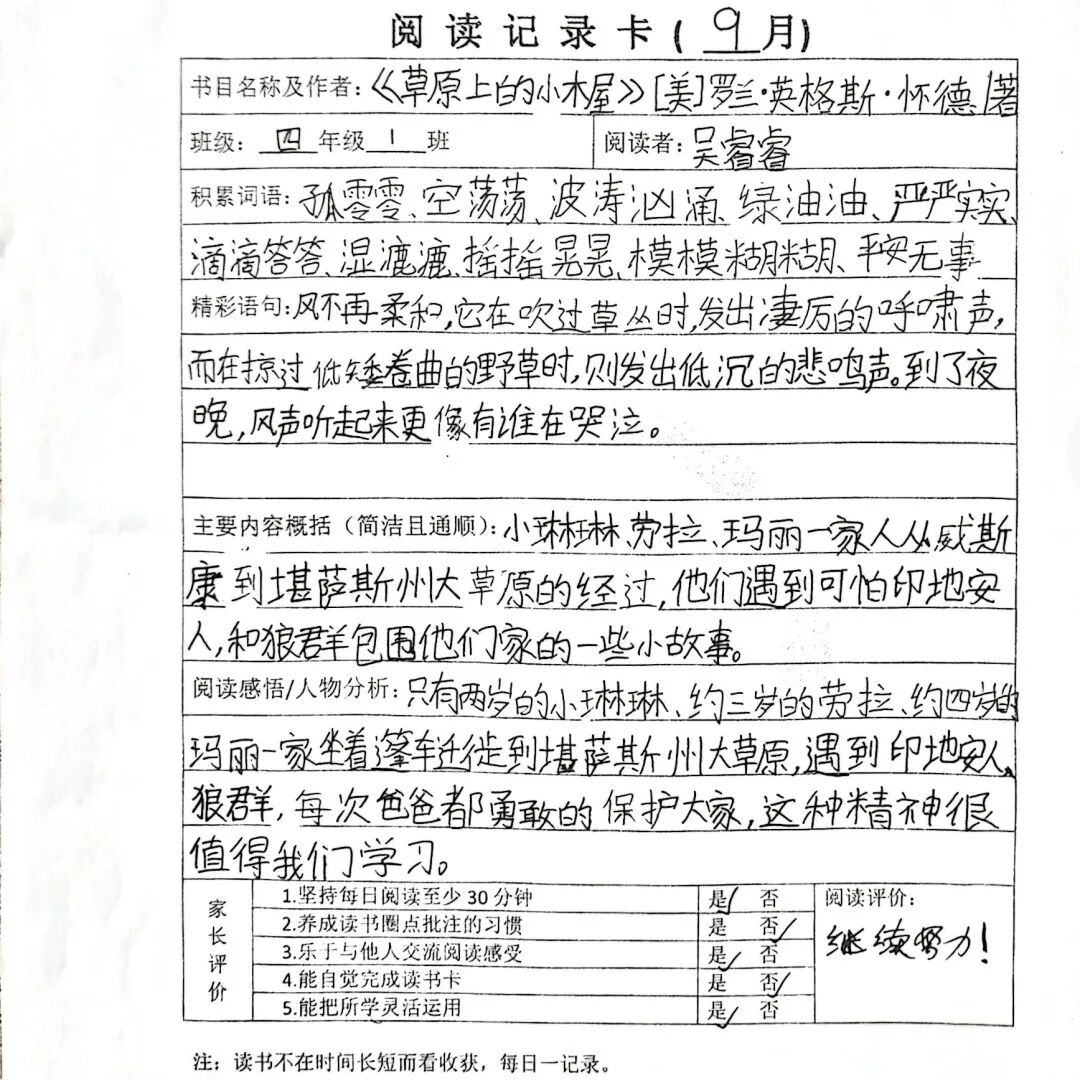 阅读记录卡(9月)
书目名称及作者：《草原上的小木屋》[美]罗兰·英格斯·怀德/著
班级：四年级1班 阅读者：吴睿睿
积累词语：孤零零、空荡荡、波涛汹涌、绿油油、严严实实、
滴滴答答、湿漉漉、摇摇晃晃、模模糊糊、平安无事
精彩语句：风不再柔和，它在吹过草丛时，发出凄厉的呼啸声，
而在掠过低矮卷曲的野草时，则发出低沉的悲鸣声。到了夜
晚，风声听起来更像有谁在哭泣。
主要内容概括（简洁且通顺）：小琳琳、劳拉、玛丽一家人从威斯
康到堪萨斯州大草原的经过，他们遇到可怕印地安
人，和狼群包围他们家的一些小故事。
阅读感悟/人物分析：只有两岁的小琳琳、约三岁的劳拉、约四岁的
玛丽一家坐着篷车迁徙到堪萨斯州大草原，遇到印地安人、
狼群，每次爸爸都勇敢的保护大家，这种精神很
值得我们学习。
家长评价
1.坚持每日阅读至少30分钟 是√ 否
2.养成读书圈点批注的习惯 是 否√
3.乐于与他人交流阅读感受 是√ 否
4.能自觉完成读书卡 是 否√
5.能把所学灵活运用 是√ 否
阅读评价：
继续努力！
注：读书不在时间长短而看收获，每日一记录。